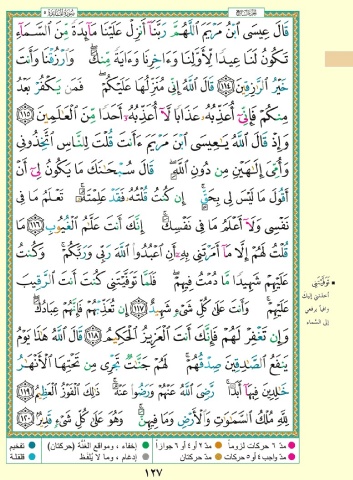 سورة المائدة ٥
الجزء السابع
قَالَ عِيسَى ٱبْنُ مَرْيَمَ ٱللَّهُمَّ رَبَّنَآ أَنزِلْ عَلَيْنَا مَآئِدَةً مِّنَ ٱلسَّمَآءِ
تَكُونُ لَنَا عِيدًا لِّأَوَّلِنَا وَءَاخِرِنَا وَءَايَةً مِّنكَ ۖ وَٱرْزُقْنَا وَأَنتَ
خَيْرُ ٱلرَّٰزِقِينَ ١١٤ قَالَ ٱللَّهُ إِنِّى مُنَزِّلُهَا عَلَيْكُمْ ۖ فَمَن يَكْفُرْ بَعْدُ
مِنكُمْ فَإِنِّىٓ أُعَذِّبُهُۥ عَذَابًا لَّآ أُعَذِّبُهُۥٓ أَحَدًا مِّنَ ٱلْعَٰلَمِينَ ١١٥
وَإِذْ قَالَ ٱللَّهُ يَٰعِيسَى ٱبْنَ مَرْيَمَ ءَأَنتَ قُلْتَ لِلنَّاسِ ٱتَّخِذُونِى
وَأُمِّىَ إِلَٰهَيْنِ مِن دُونِ ٱللَّهِ ۖ قَالَ سُبْحَٰنَكَ مَا يَكُونُ لِىٓ أَنْ
أَقُولَ مَا لَيْسَ لِى بِحَقٍّ ۚ إِن كُنتُ قُلْتُهُۥ فَقَدْ عَلِمْتَهُۥ ۚ تَعْلَمُ مَا فِى
نَفْسِى وَلَآ أَعْلَمُ مَا فِى نَفْسِكَ ۚ إِنَّكَ أَنتَ عَلَّٰمُ ٱلْغُيُوبِ ١١٦ مَا
قُلْتُ لَهُمْ إِلَّا مَآ أَمَرْتَنِى بِهِۦٓ أَنِ ٱعْبُدُوا۟ ٱللَّهَ رَبِّى وَرَبَّكُمْ ۚ وَكُنتُ
عَلَيْهِمْ شَهِيدًا مَّا دُمْتُ فِيهِمْ ۖ فَلَمَّا تَوَفَّيْتَنِى كُنتَ أَنتَ ٱلرَّقِيبَ
عَلَيْهِمْ ۚ وَأَنتَ عَلَىٰ كُلِّ شَىْءٍ شَهِيدٌ ١١٧ إِن تُعَذِّبْهُمْ فَإِنَّهُمْ عِبَادُكَ ۖ
وَإِن تَغْفِرْ لَهُمْ فَإِنَّكَ أَنتَ ٱلْعَزِيزُ ٱلْحَكِيمُ ١١٨ قَالَ ٱللَّهُ هَٰذَا يَوْمُ
يَنفَعُ ٱلصَّٰدِقِينَ صِدْقُهُمْ ۚ لَهُمْ جَنَّٰتٌ تَجْرِى مِن تَحْتِهَا ٱلْأَنْهَٰرُ
خَٰلِدِينَ فِيهَآ أَبَدًا ۚ رَّضِىَ ٱللَّهُ عَنْهُمْ وَرَضُوا۟ عَنْهُ ۚ ذَٰلِكَ ٱلْفَوْزُ ٱلْعَظِيمُ ١١٩
لِلَّهِ مُلْكُ ٱلسَّمَٰوَٰتِ وَٱلْأَرْضِ وَمَا فِيهِنَّ ۚ وَهُوَ عَلَىٰ كُلِّ شَىْءٍ قَدِيرٌۢ ١٢٠
تَوَفَّيْتَنِي
أخذتني إليك
وافياً برفعي
إلى السَّماء
مدّ ٦ حركات لزوماً مدّ ٢ أو ٤ أو ٦ جوازاً إخفاء، ومواقع الغنّة (حركتان) تفخيم
مدّ واجب ٤ أو ٥ حركات مدّ حركتان إدغام، وما لا يُلفظ قلقلة
١٢٧